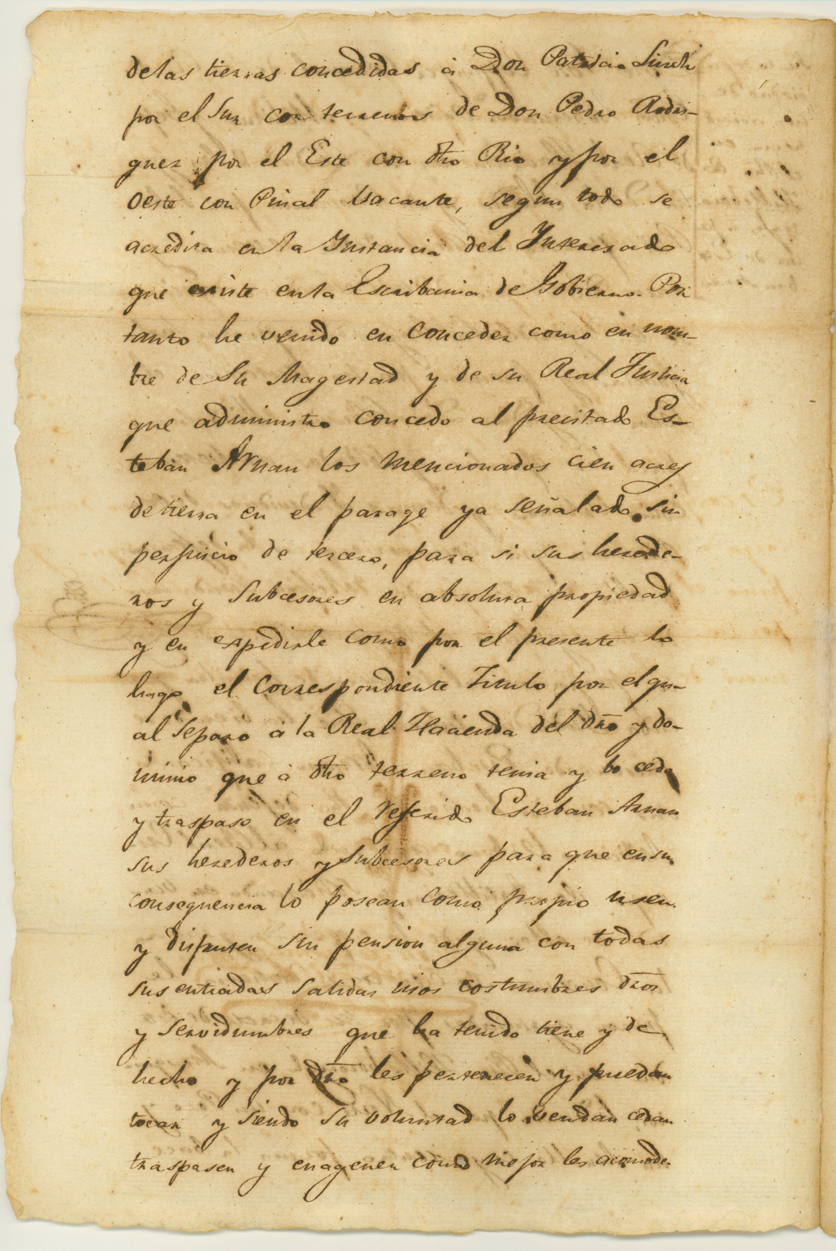 delas tierras concedidas à Don Patricio Linch
por el Sur con terrenos de Don Pedro Rodri-
guez por el Este con dho Rio y por el
Oeste con Pinal Vacante, segun todo se
acredita en la Instancia del Interesado
que existe en la Escribania de Gobierno. Por
tanto he venido en Conceder como en nom-
bre de Su Magestad y de su Real Justicia
que administro concedo al precitado Es-
teban Arnau los mencionados cien acres
de tierra en el parage ya señalado sin
perjuicio de tercero, para si sus herede-
ros y Subcesores en absoluta propiedad
y en expedirle como por el presente lo
hago el Correspondiente Titulo por el qu-
al Separo à la Real Hacienda del dro y do-
minio que à dho terreno tenia y lo cedo
y traspaso en el referido Esteban Arnau
sus herederos y Subcesores para que ensu
consequencia lo posean como propio usen
y disfruten sin pension alguna con todas
sus entradas salidas usos costumbres dros
y servidumbres que ha tenido tiene y de
hecho y por dro les pertenecen y puedan
tocar y siendo su voluntad lo vendan cedan
traspasen y enagenen como mejor les acomode